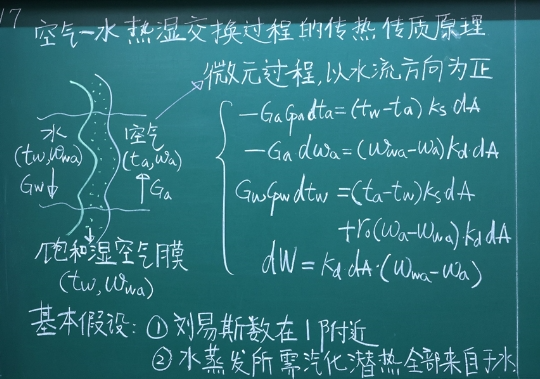 17
空气-水热湿交换过程的传热传质原理
微元过程,以水流方向为正
水
(tw, ωwa)
Gw↓
空气
(ta, ωa)
↑Ga
饱和湿空气膜
(tw, ωwa)
-Ga cpa dta = (tw-ta) ks dA
-Ga dωa = (ωwa-ωa) kd dA
Gw cpw dtw = (ta-tw) ks dA
+ r0(ωa-ωwa)·kd dA
dW = kd dA·(ωwa-ωa)
基本假设: ① 刘易斯数在1附近
② 水蒸发所需汽化潜热全部来自于水